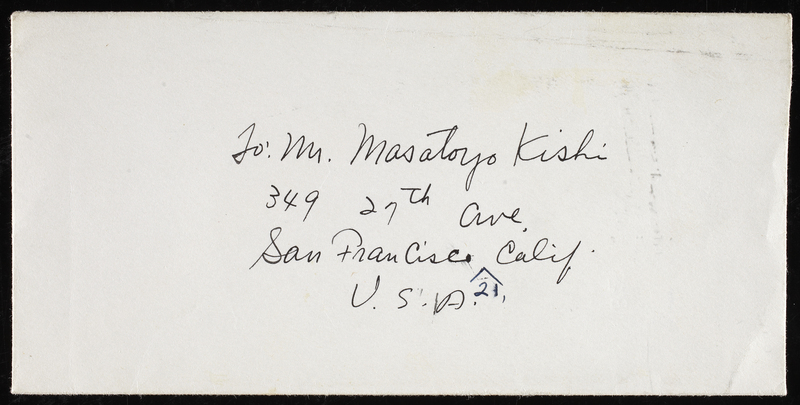 To: Mr. Masatoyo Kishi
349 27th Ave.
San Francisco 21, Calif.
U.S.A.